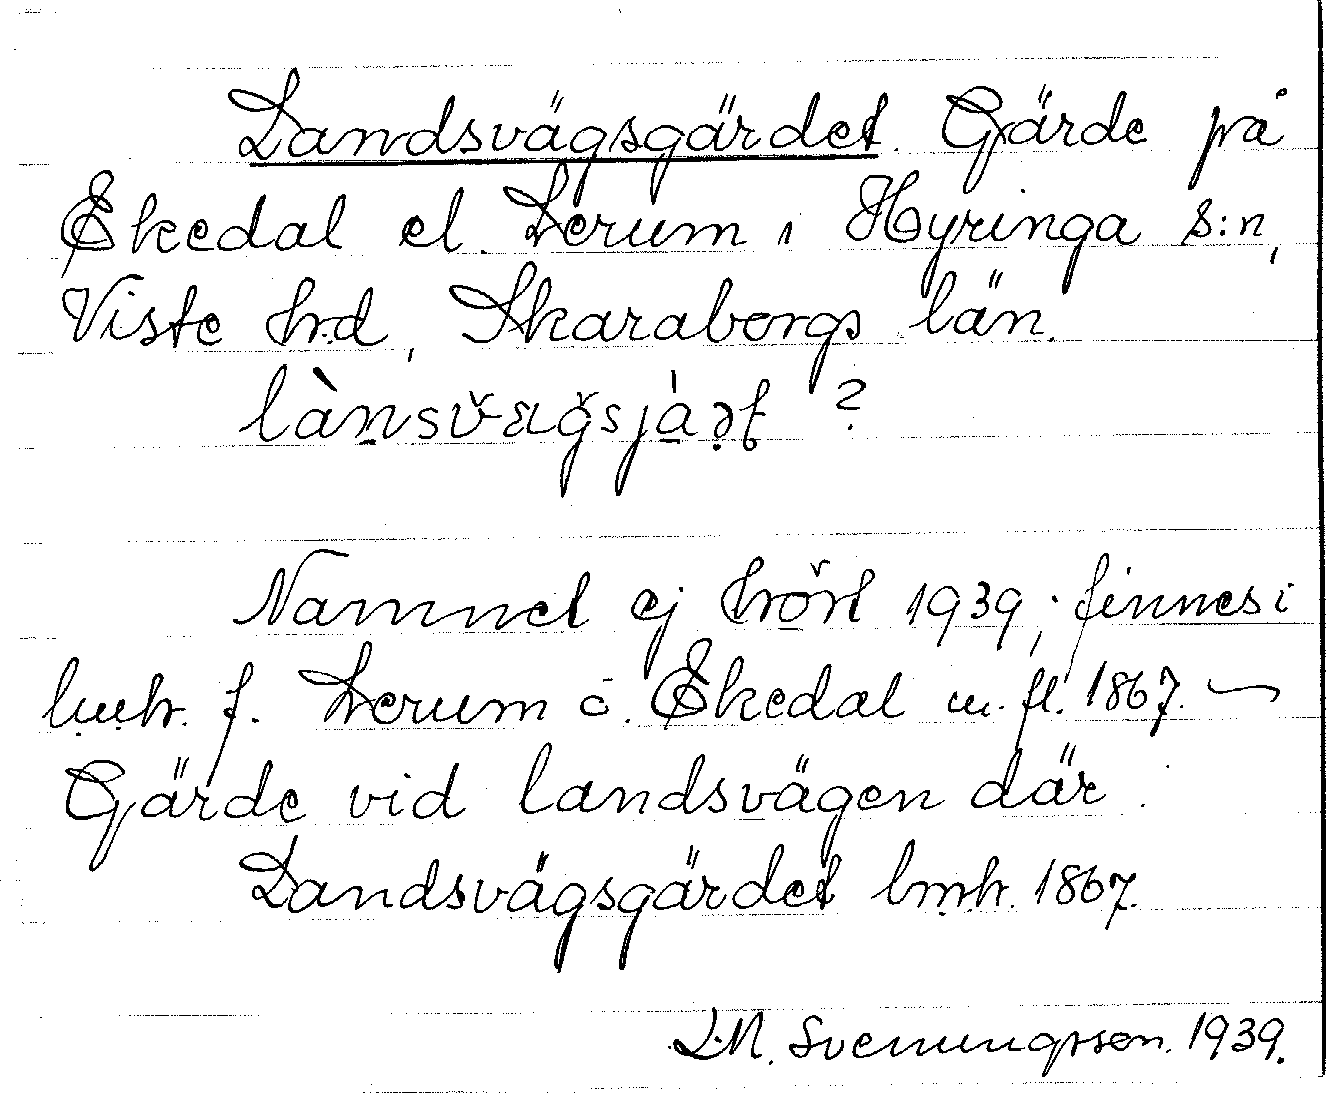 Landsvägsgärdet. Gärde på
Ekedal el. Lerum i Hyringa s:n,
Viste hd, Skaraborgs län.
lànsvægsjàṛt ?
Namnet ej hört 1939; finnes i
lmh. f. Lerum o. Ekedal m. fl. 1867. —
Gärde vid landsvägen där.
Landsvägsgärdet lmh. 1867.
L.M. Svenungsson. 1939.